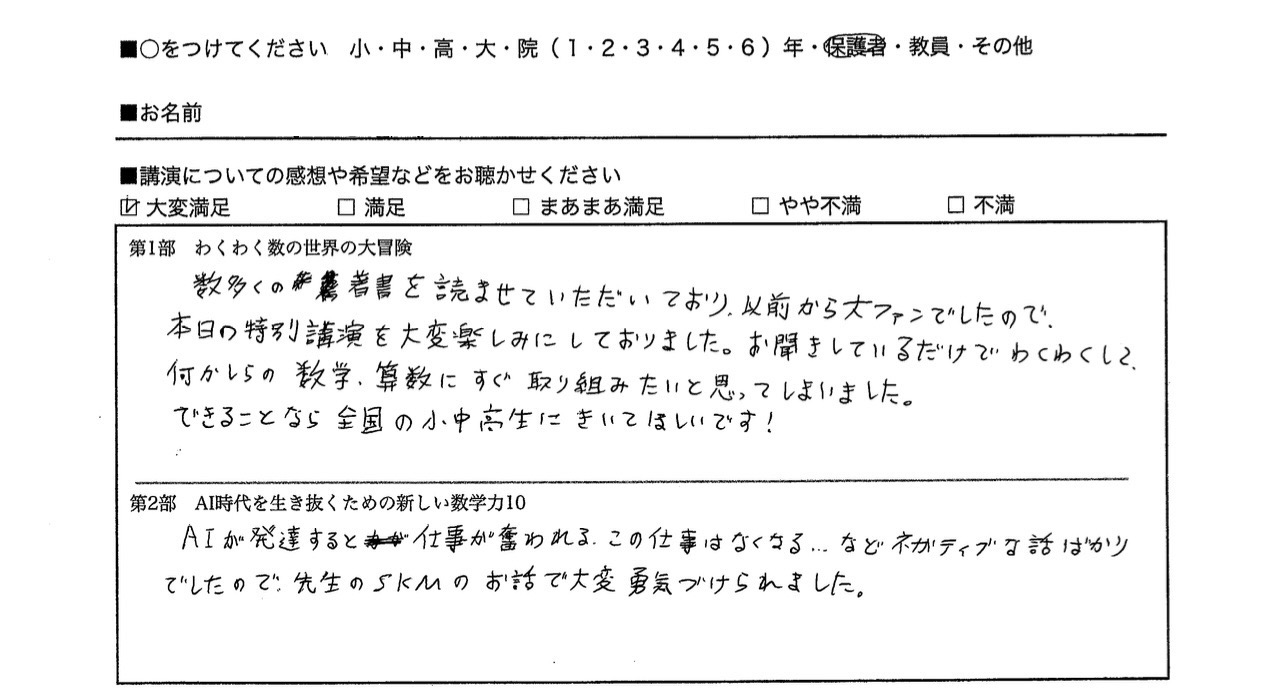 ■○をつけてください 小・中・高・大・院(1・2・3・4・5・6)年・保護者・教員・その他
■お名前
■講演についての感想や希望などをお聴かせください
☑ 大変満足 □ 満足 □ まあまあ満足 □ やや不満 □ 不満
第1部 わくわく数の世界の大冒険
数多くの著書を読ませていただいており、以前から大ファンでしたので、
本日の特別講演を大変楽しみにしておりました。お聞きしているだけでわくわくして、
何かしらの数学、算数にすぐ取り組みたいと思ってしまいました。
できることなら全国の小中高生にきいてほしいです!
第2部 AI時代を生き抜くための新しい数学力10
AIが発達すると仕事が奪われる、この仕事はなくなる…などネガティブな話ばかり
でしたので、先生のSKMのお話で大変勇気づけられました。